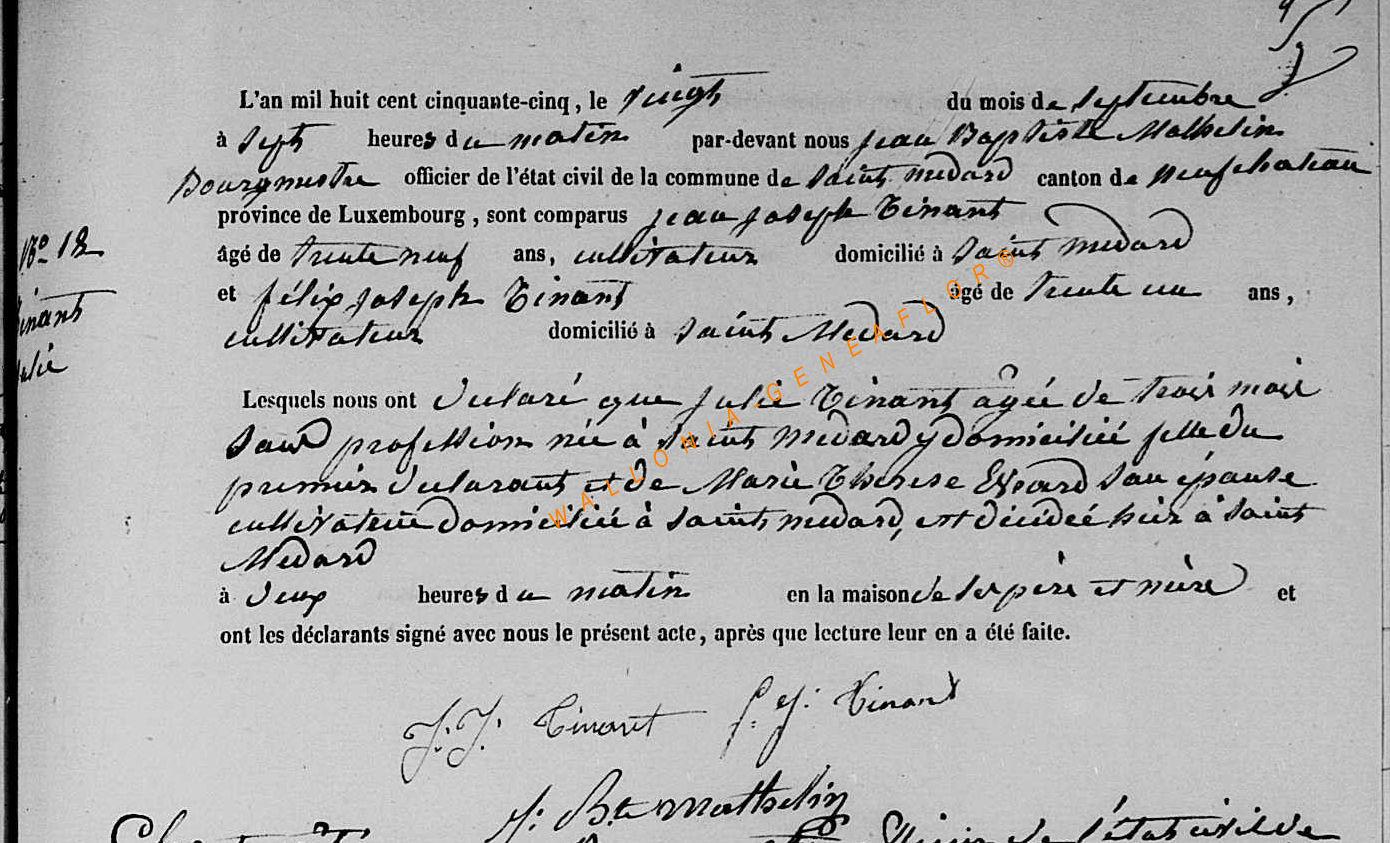 L'an mil huit cent cinquante-cinq, le vingt du mois de septembre
à sept heures du matin par-devant nous jean Baptiste Mathelin
Bourgmestre officier de l'état civil de la commune de Saint medard canton de neufchateau
province de Luxembourg, sont comparus jean joseph Tinant
No 18 âgé de trente neuf ans, cultivateur domicilié à Saint Medard
et félix joseph Tinant âgé de trente un ans,
inant
cultivateur domicilié à Saint Medard
ulie
Lesquels nous ont déclaré que julie Tinant agée de trois mois
sans profession née à Saint Medard y domiciliée fille du
premier déclarant et de Marie Therese Evrard son épouse
cultivatrice domiciliée à Saint medard, est décidée hier à Saint
Medard
à deux heures du matin en la maison de ses père et mère et
ont les déclarants signé avec nous le présent acte, après que lecture leur en a été faite.
J. J. Tinant f. J. Tinant
J. Bte Mathelin
de l'état civil de
WALLONIA-GENEAFLOR®